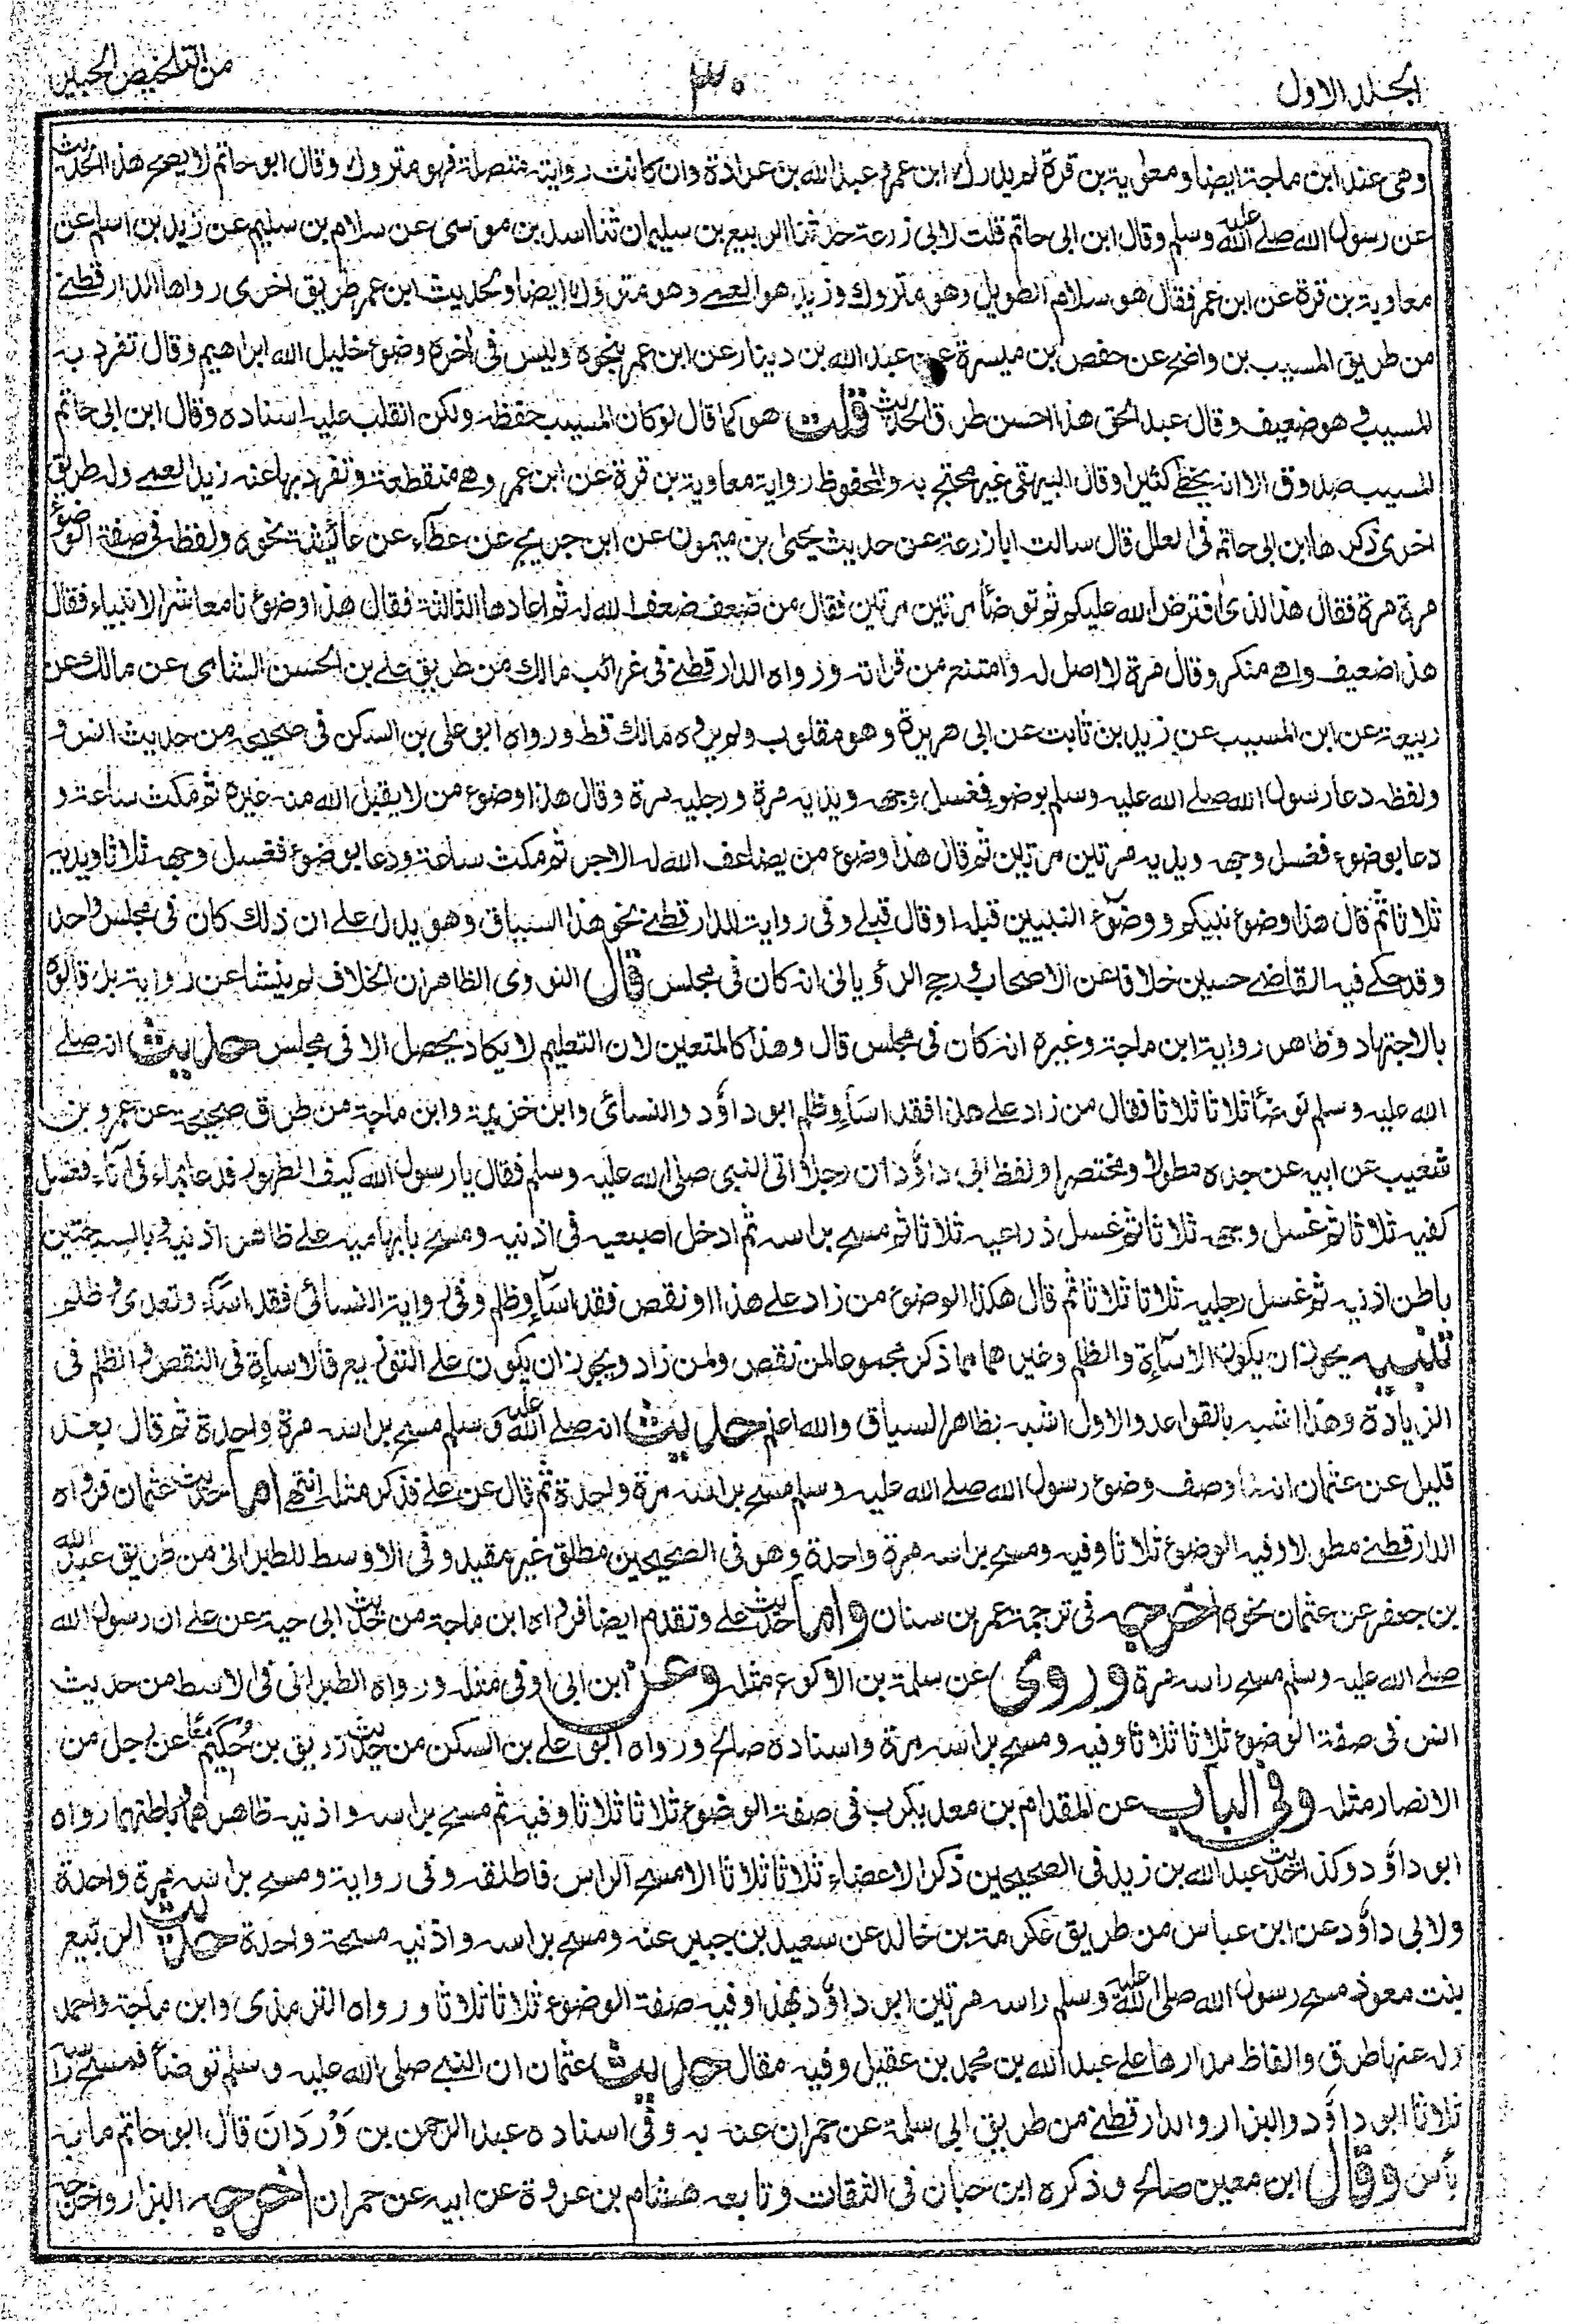 المجلد الاول
٣٠
من التلخيص الحبير
وهى عند ابن ماجة ايضا ومعوية بن قرة لم يدرك ابن عمر وعبد الله بن عرادة وان كانت روايته متصلة فهو متروك وقال ابو حاتم لا يصح هذا الحديث
عن رسول الله صلى الله عليه وسلم وقال ابن ابى حاتم قلت لابى زرعة حدثنا الربيع بن سليمان ثنا اسد بن موسى عن سلام بن سليم عن زيد بن اسلم عن
معاوية بن قرة عن ابن عمر فقال هو سلام الطويل وهو متروك وزيد هو العمى وهو متروك ايضا ولحديث ابن عمر طريق اخرى رواها الدارقطنى
من طريق المسيب بن واضح عن حفص بن ميسرة عن عبد الله بن دينار عن ابن عمر بنحوه وليس فى اخره وضوء خليل الله ابراهيم وقال تفرد به
المسيب وهو ضعيف وقال عبد الحق هذا احسن طرق الحديث قلت هو كما قال لو كان المسيب حفظه ولكن انقلب عليه اسناده وقال ابن ابى حاتم
المسيب صدوق الا انه يخطئ كثيرا وقال البيهقى غير محتج به والمحفوظ رواية معاوية بن قرة عن ابن عمر وهى منقطعة وتفرد بها عنه زيد العمى وله طريق
اخرى ذكرها ابن ابى حاتم فى العلل قال سالت ابا زرعة عن حديث يحيى بن ميمون عن ابن جريج عن عطاء عن عائشة نحوه ولفظه فى صفة الوضوء
مرة مرة فقال هذا الذى افترض الله عليكم ثم توضأ مرتين مرتين فقال من ضعف ضعف الله له ثم اعادها الثالثة فقال هذا وضوءنا معاشر الانبياء فقال
هذا ضعيف واه منكر وقال مرة لا اصل له وامتنع من قراته ورواه الدارقطنى فى غرائب مالك من طريق على بن الحسن الشامى عن مالك عن
ربيعة عن ابن المسيب عن زيد بن ثابت عن ابى هريرة وهو مقلوب ولم يروه مالك قط ورواه ابو على بن السكن فى صحيحه من حديث انس و
ولفظه دعا رسول الله صلى الله عليه وسلم بوضوء فغسل وجهه ويديه مرة ورجليه مرة وقال هذا وضوء من لا يقبل الله منه غيره ثم مكث ساعة و
دعا بوضوء فغسل وجهه ويديه مرتين مرتين ثم قال هذا وضوء من يضاعف الله له الاجر ثم مكث ساعة ودعا بوضوء فغسل وجهه ثلاثا ويديه
ثلاثا ثم قال هذا وضوء نبيكم ووضوء النبيين قبله او قال قبلى وفى رواية للدارقطنى نحو هذا السياق وهو يدل على ان ذلك كان فى مجلس واحد
وقد حكى فيه القاضى حسين خلافا عن الاصحاب رجح الرؤيانى انه كان فى مجلس قال النووى الظاهر ان الخلاف لم ينشا عن رواية بل قالوه
بالاجتهاد وظاهر رواية ابن ماجة وغيره انه كان فى مجلس قال وهذا كالمتعين لان التعليم لا يكاد يحصل الا فى مجلس حديث انه صلى
الله عليه وسلم توضأ ثلاثا ثلاثا فقال من زاد على هذا فقد اساء وظلم ابو داؤد والنسائى وابن خزيمة وابن ماجة من طرق صحيحة عن عمرو بن
شعيب عن ابيه عن جده مطولا ومختصرا ولفظ ابى داؤد ان رجلا اتى النبى صلى الله عليه وسلم فقال يا رسول الله كيف الطهور فدعا بماء فى اناء فغسل
كفيه ثلاثا ثم غسل وجهه ثلاثا ثم غسل ذراعيه ثلاثا ثم مسح براسه ثم ادخل اصبعيه فى اذنيه ومسح بابهاميه على ظاهر اذنيه وبالسبحتين
باطن اذنيه ثم غسل رجليه ثلاثا ثلاثا ثم قال هكذا الوضوء من زاد على هذا او نقص فقد اساء وظلم وفى رواية النسائى فقد اساء وتعدى وظلم
تنبيه يجوز ان يكون الاساءة والظلم وغيرهما مما ذكر مجموعا لمن نقص ولمن زاد ويجوز ان يكون على التوزيع فالاساءة فى النقص والظلم فى
الزيادة وهذا اشبه بالقواعد والاول اشبه بظاهر السياق والله اعلم حديث انه صلى الله عليه وسلم مسح براسه مرة واحدة ثم قال بعد
قليل عن عثمان انه وصف وضوء رسول الله صلى الله عليه وسلم مسح براسه مرة واحدة ثم قال عن على فذكر مثله انتهى اما حديث عثمان فرواه
الدارقطنى مطولا وفيه الوضوء ثلاثا وفيه ومسح براسه مرة واحدة وهو فى الصحيحين مطلق غير مقيد وفى الاوسط للطبرانى من طريق عبد الله
بن جعفر عن عثمان نحوه اخرجه فى ترجمة عمر بن سنان واما حديث على وتقدم ايضا فرواه ابن ماجة من حديث ابى حية عن على ان رسول الله
صلى الله عليه وسلم مسح راسه مرة وروى عن سلمة بن الاكوع مثله وعن ابن ابى اوفى مثله ورواه الطبرانى فى الاوسط من حديث
انس فى صفة الوضوء ثلاثا ثلاثا وفيه ومسح براسه مرة واسناده صالح ورواه ابو على بن السكن من حديث رزيق بن حكيم عن رجل من
الانصار مثله وفى الباب عن المقدام بن معديكرب فى صفة الوضوء ثلاثا ثلاثا وفيه ثم مسح براسه واذنيه ظاهرهما وباطنهما رواه
ابو داؤد وكذا حديث عبد الله بن زيد فى الصحيحين ذكر الاعضاء ثلاثا ثلاثا الا مسح الراس فاطلقه وفى رواية ومسح براسه مرة واحدة
ولابى داؤد عن ابن عباس من طريق عكرمة بن خالد عن سعيد بن جبير عنه ومسح براسه واذنيه مسحة واحدة حديث الربيع
بنت معوذ مسح رسول الله صلى الله عليه وسلم راسه مرتين ابو داؤد بهذا وفيه صفة الوضوء ثلاثا ثلاثا ورواه الترمذى وابن ماجة واحمد
وله عنها طرق والفاظ مدارها على عبد الله بن محمد بن عقيل وفيه مقال حديث عثمان ان النبى صلى الله عليه وسلم توضأ فمسح راسه
ثلاثا ابو داؤد والبزار والدارقطنى من طريق ابى سلمة عن حمران عنه به وفى اسناده عبد الرحمن بن وَرْدَانَ قال ابو حاتم ما به
بأس وقال ابن معين صالح وذكره ابن حبان فى الثقات وتابعه هشام بن عروة عن ابيه عن حمران اخرجه البزار واخرجه